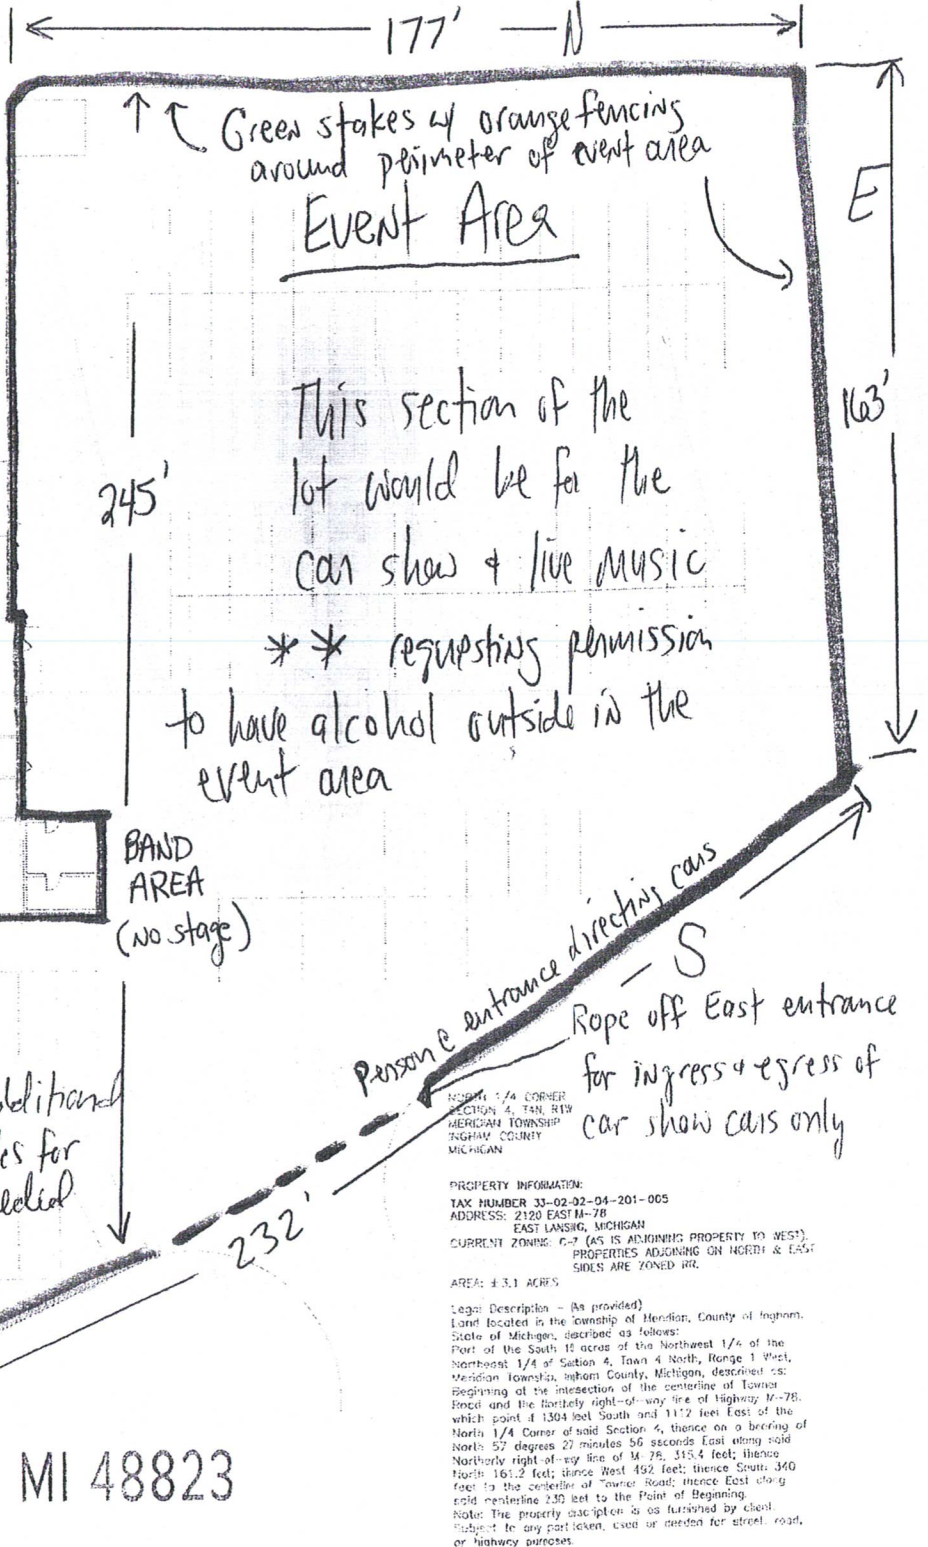 177' N
Green stakes w/ orange fencing
around perimeter of event area
E
Event Area
163'
This section of the
lot would be for the
car show & live music
245'
** requesting permission
to have alcohol outside in the
event area
BAND
AREA
(NO stage)
Person @ entrance directing cars
S
Rope off East entrance
for ingress & egress of
car show cars only
for
232'
NORTH 1/4 CORNER
SECTION 4, T4N, R1W
MERIDIAN TOWNSHIP
INGHAM COUNTY
MICHIGAN
PROPERTY INFORMATION:
TAX NUMBER 33-02-02-04-201-005
ADDRESS: 2120 EAST M-78
EAST LANSING, MICHIGAN
CURRENT ZONING: C-2 (AS IS ADJOINING PROPERTY TO WEST).
PROPERTIES ADJOINING ON NORTH & EAST
SIDES ARE ZONED RR.
AREA: ±3.1 ACRES
Legal Description - (As provided)
Land located in the Township of Meridian, County of Ingham,
State of Michigan, described as follows:
Part of the South 18 acres of the Northwest 1/4 of the
Northeast 1/4 of Section 4, Town 4 North, Range 1 West,
Meridian Township, Ingham County, Michigan, described as:
Beginning at the intesection of the centerline of Towner
Road and the Northely right-of-way line of Highway M-78,
which point is 1304 feet South and 1112 feet East of the
North 1/4 Corner of said Section 4, thence on a bearing of
North 57 degrees 27 minutes 56 seconds East along said
Northerly right-of-way line of M-78, 315.4 feet; thence
North 161.2 feet; thence West 492 feet; thence South 340
feet to the centerline of Towner Road; thence East along
said centerline 230 feet to the Point of Beginning.
Note: The property discription is as furnished by client.
Subject to any part taken, used or deeded for street, road,
or highway purposes.
MI 48823